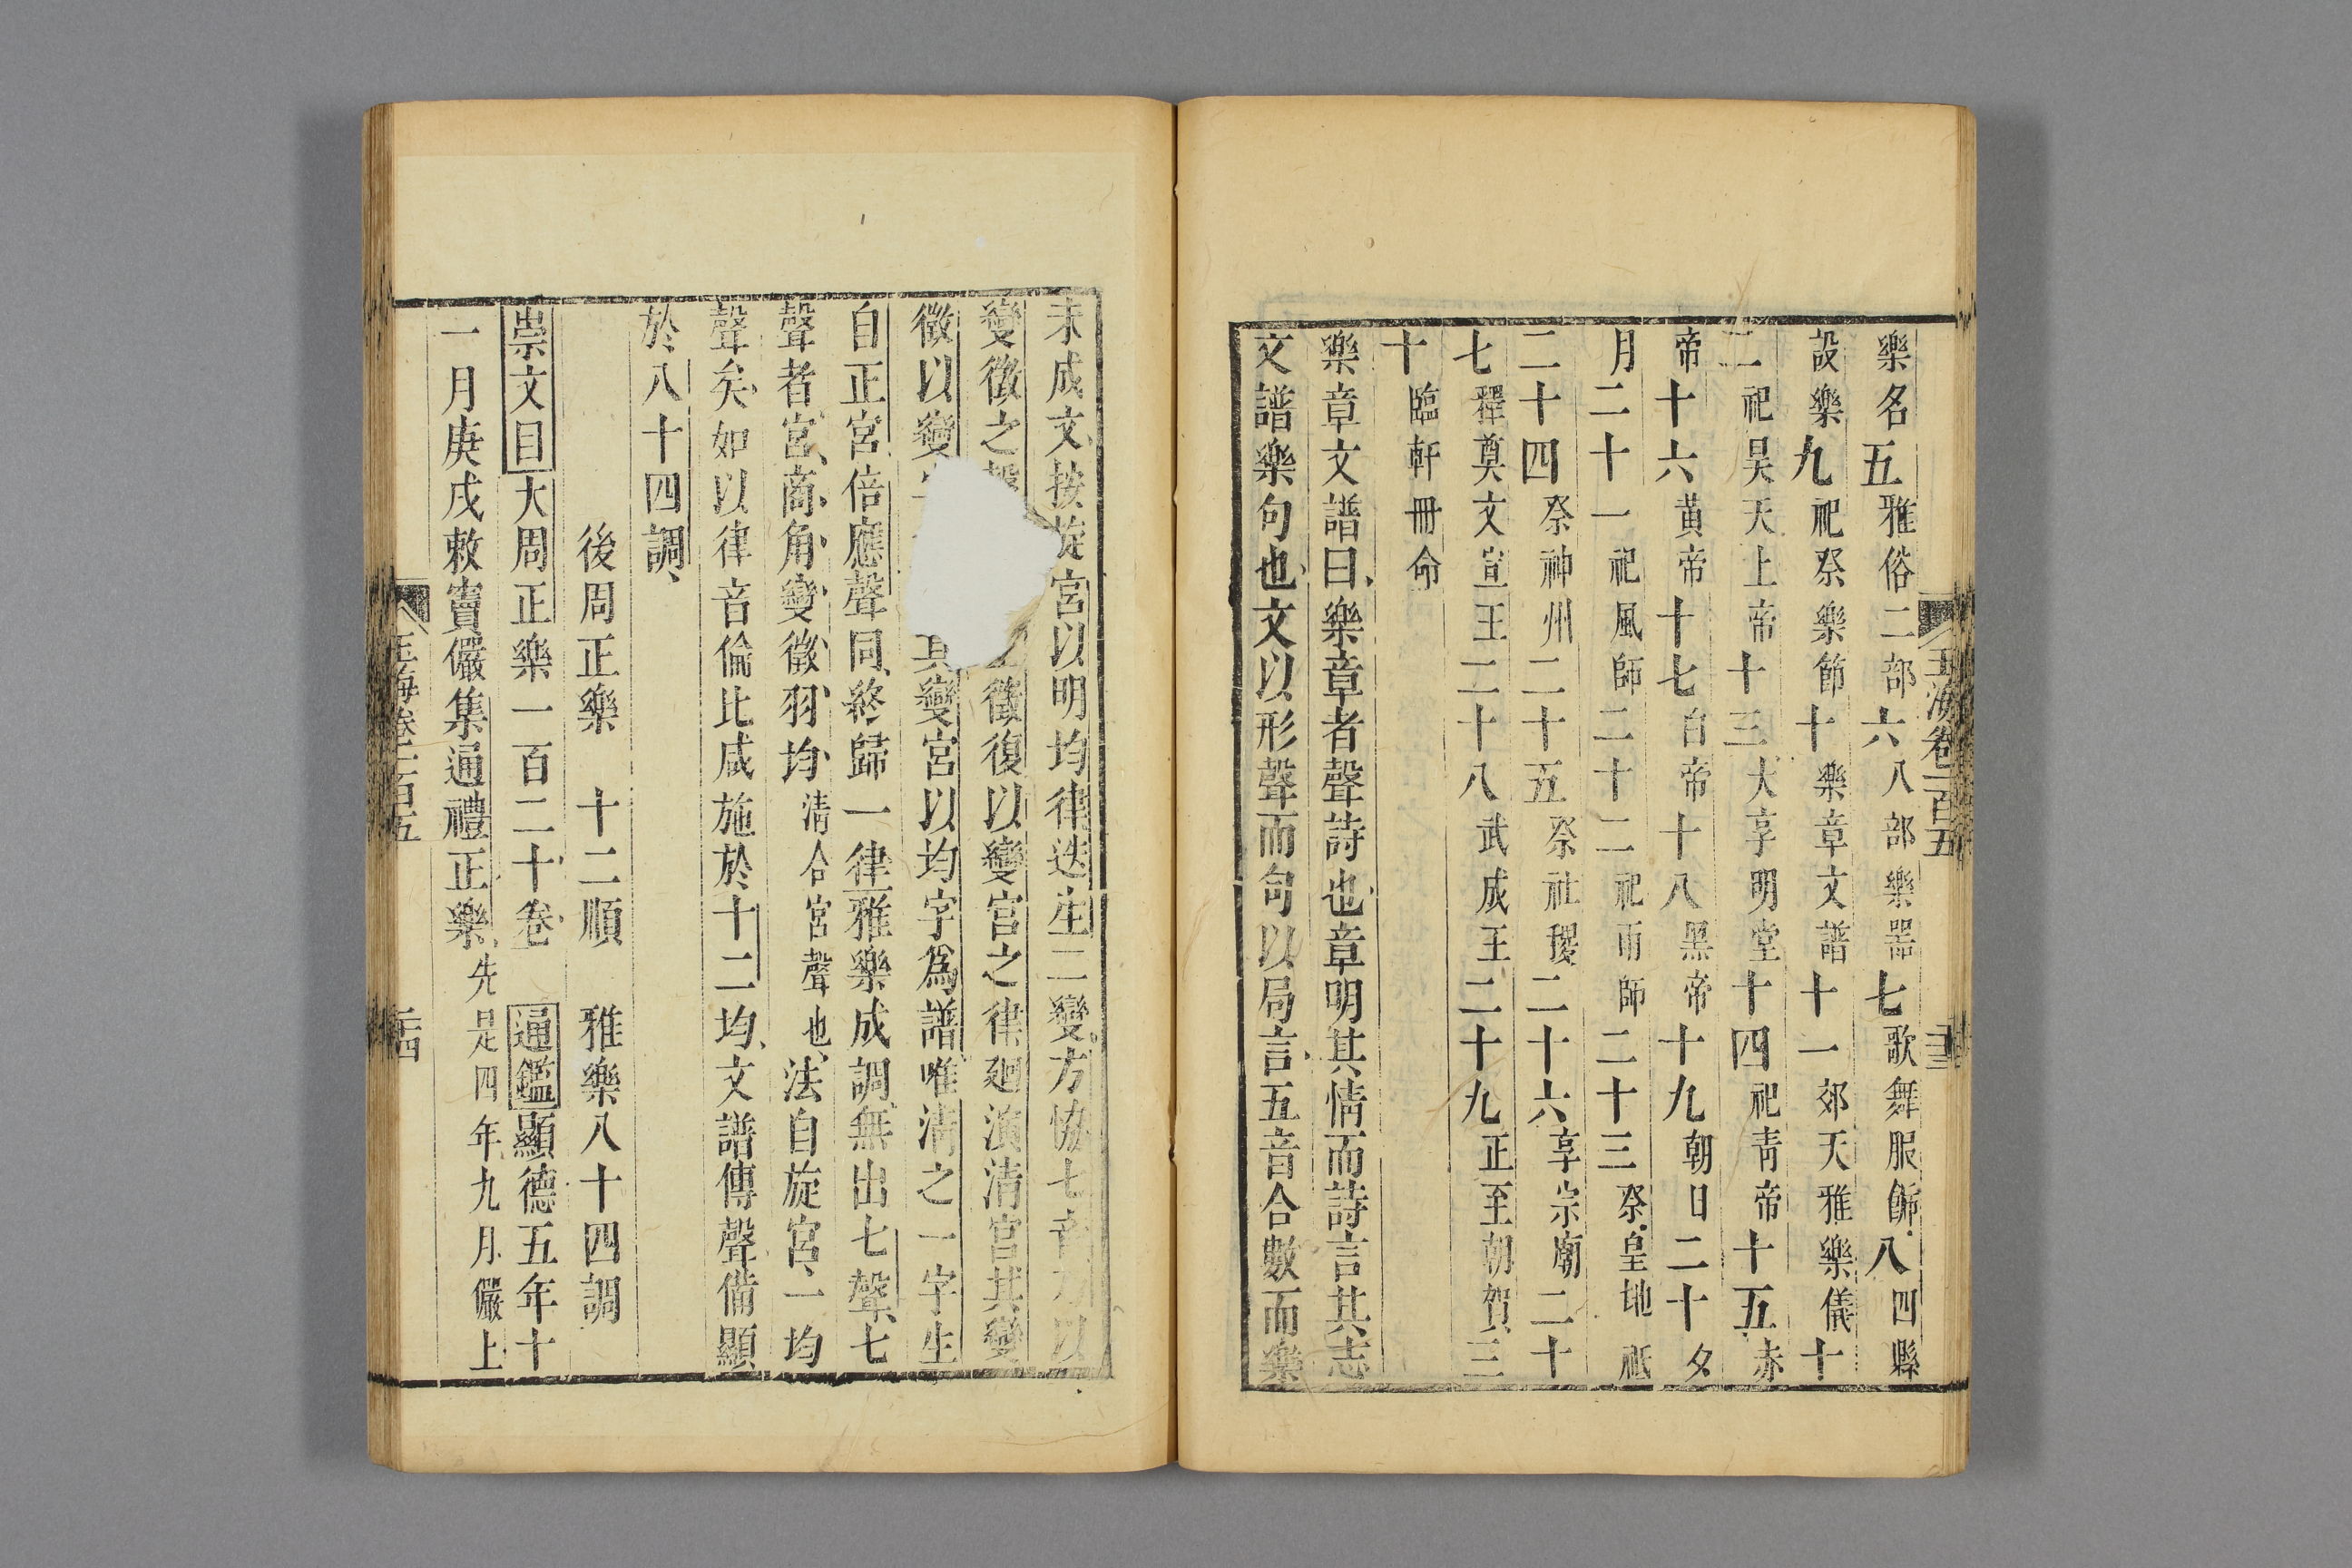 玉海卷一百五
樂名五雅俗二部六八部樂器七歌舞服飾八四縣
設樂九祀祭樂節十樂章文譜十一郊天雅樂儀十
二祀昊天上帝十三大享明堂十四祀青帝十五赤
帝十六黃帝十七白帝十八黑帝十九朝日二十夕
月二十一祀風師二十二祀雨師二十三祭皇地祇
二十四祭神州二十五祭社稷二十六享宗廟二十
七釋奠文宣王二十八武成王二十九正至朝賀三
十臨軒冊命
樂章文譜曰樂章者聲詩也章明其情而詩言其志
文譜樂句也文以形聲而句以局言五音合數而樂
未成文按旋宮以明均律迭生二變方協七音乃以
變徵之聲徵復以變宮之律廻演清宮其變
徵以變其變宮以均字爲譜唯清之一字生
自正宮倍應聲同終歸一律雅樂成調無出七聲七
聲者宮商角變徵羽均清合宮聲也法自旋宮一均
聲矣如以律音倫比咸施於十二均文譜傳聲備顯
於八十四調
後周正樂 十二順 雅樂八十四調
崇文目大周正樂一百二十卷 通鑑顯德五年十
一月庚戌敕竇儼集通禮正樂先是四年九月儼上
玉海卷一百五